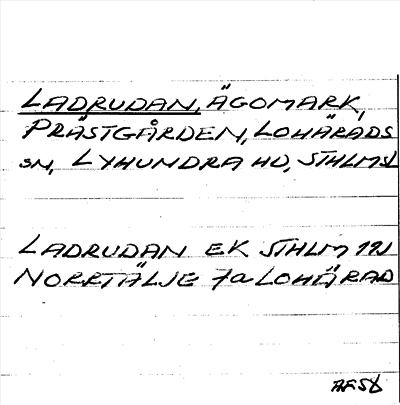 LADRUDAN, ÄGOMARK,
PRÄSTGÅRDEN, LOHÄRADS
SN, LYHUNDRA HD, STHLMS L
LADRUDAN EK STHLM 121
NORRTÄLJE 7a LOHÄRAD